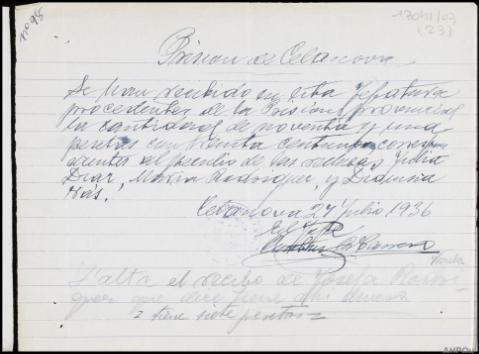 nº 98
17041/03
(23)
Prision de Celanova
Se han recibido en esta Jefatura
procedentes de la Prision provincial
la cantidad de noventa y una
pesetas con treinta centimos corres
dientes al peculio de las reclusas Julia
Diaz, Maria Rodriguez, y
Celanova 27 Julio 1936
El Jefe
Falta el recibo de Josefa Rodri
guez que dice tiene
tiene siete pesetas